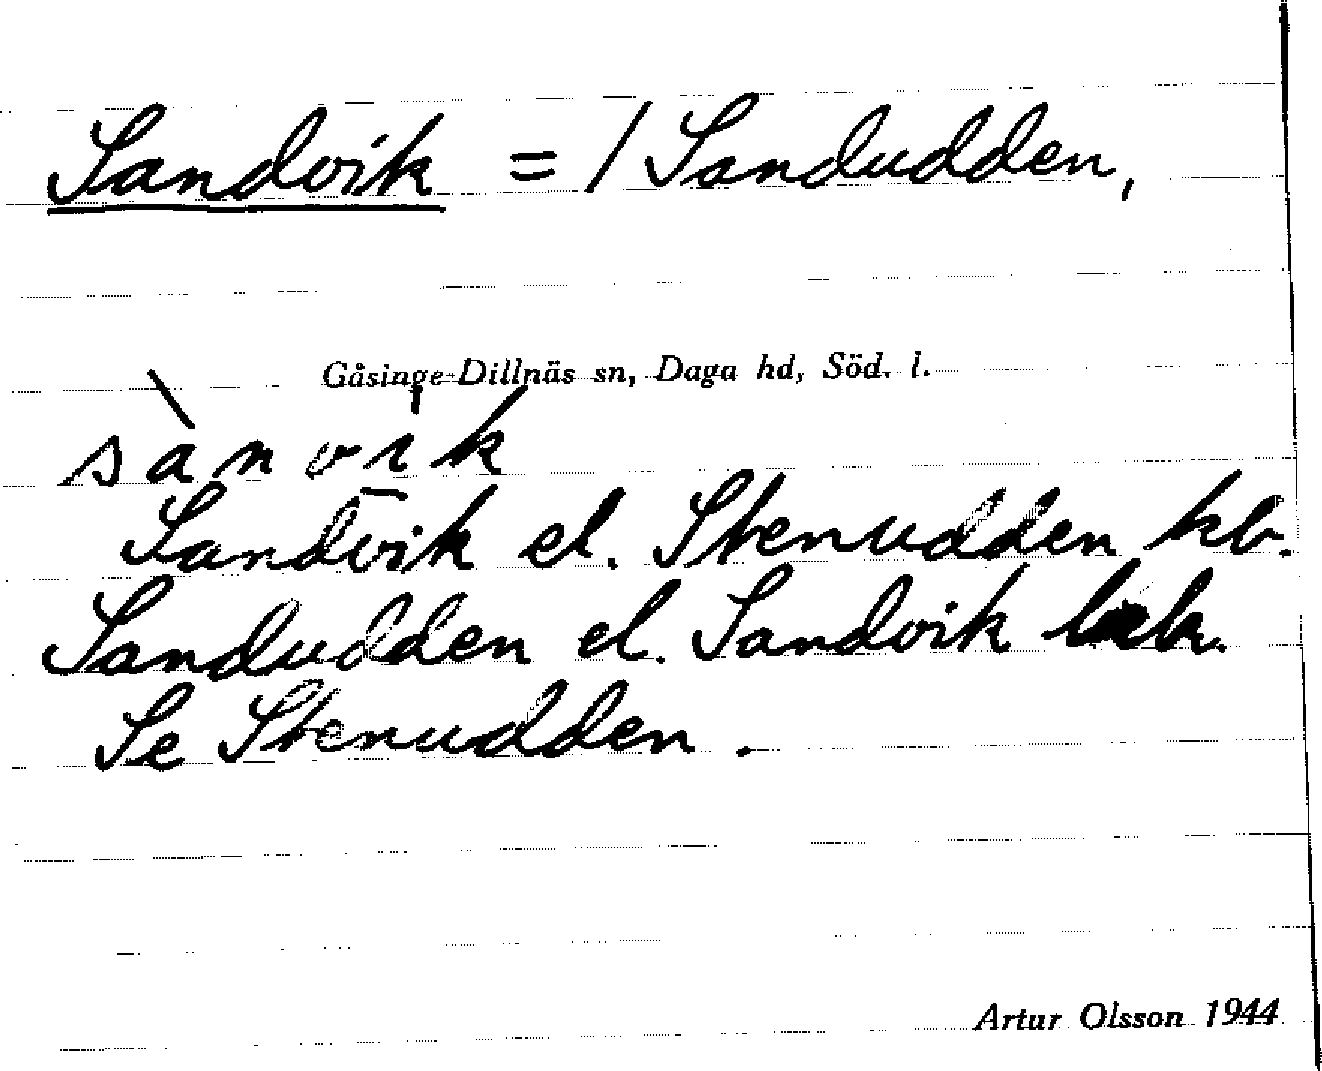 Sandvik = / Sandudden,
Gåsinge-Dillnäs sn, Daga hd, Söd. l.
sànvik
Sandvik el. Stenudden kb.
Sandudden el. Sandvik
Se Stenudden.
Artur Olsson 1944